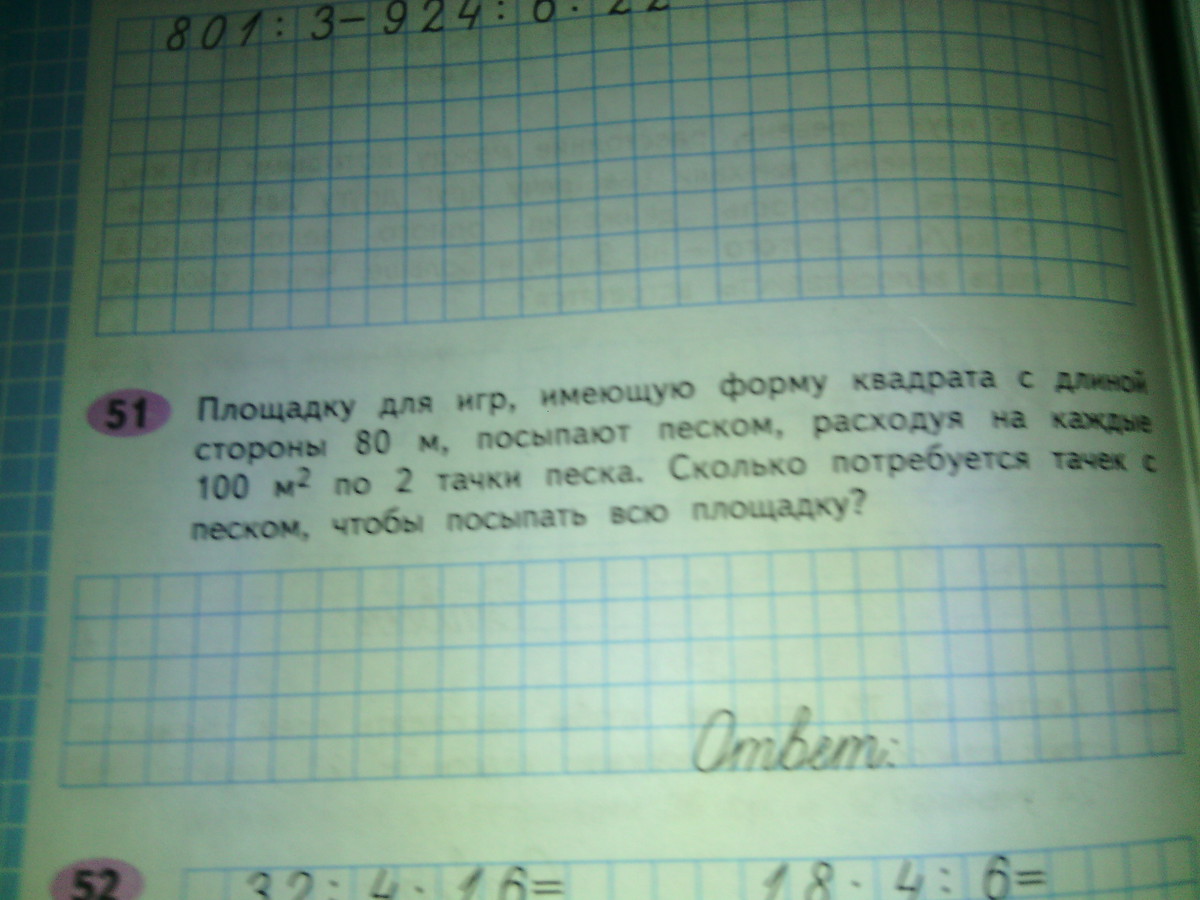 801:3-924:6:22
51 Площадку для игр, имеющую форму квадрата с длиной
стороны 80 м, посыпают песком, расходуя на каждые
100 м² по 2 тачки песка. Сколько потребуется тачек с
песком, чтобы посыпать всю площадку?
Ответ:
52 32:4·16= 18·4:6=